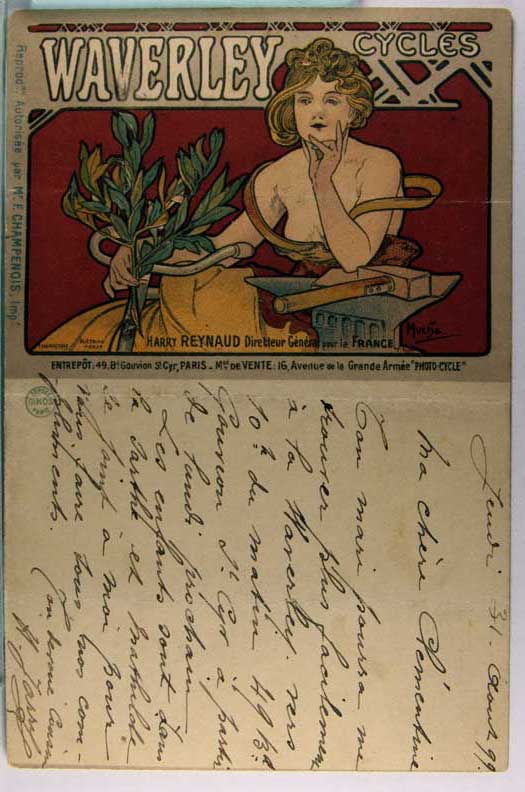 WAVERLEY CYCLES
Reprodon Autorisée par Mr F. CHAMPENOIS, Impr
Mucha
HARRY REYNAUD Directeur Général pour la FRANCE
ENTREPÔT: 49, Bd Gouvion St Cyr, PARIS - Mon DE VENTE: 16, Avenue de la Grande Armée "PHOTO-CYCLE"
Jeudi 31 Août 99
Ma chère Clémentine
Ton mari pourra me
trouver plus facilement
à la Waverley vers
10h du matin 49 Bd
Gouvion St Cyr à partir
de lundi prochain
Les enfants sont dans
la Sarthe et Mathilde
se joint à moi pour
vous faire tous nos com-
pliments.
Ton dévoué Cousin